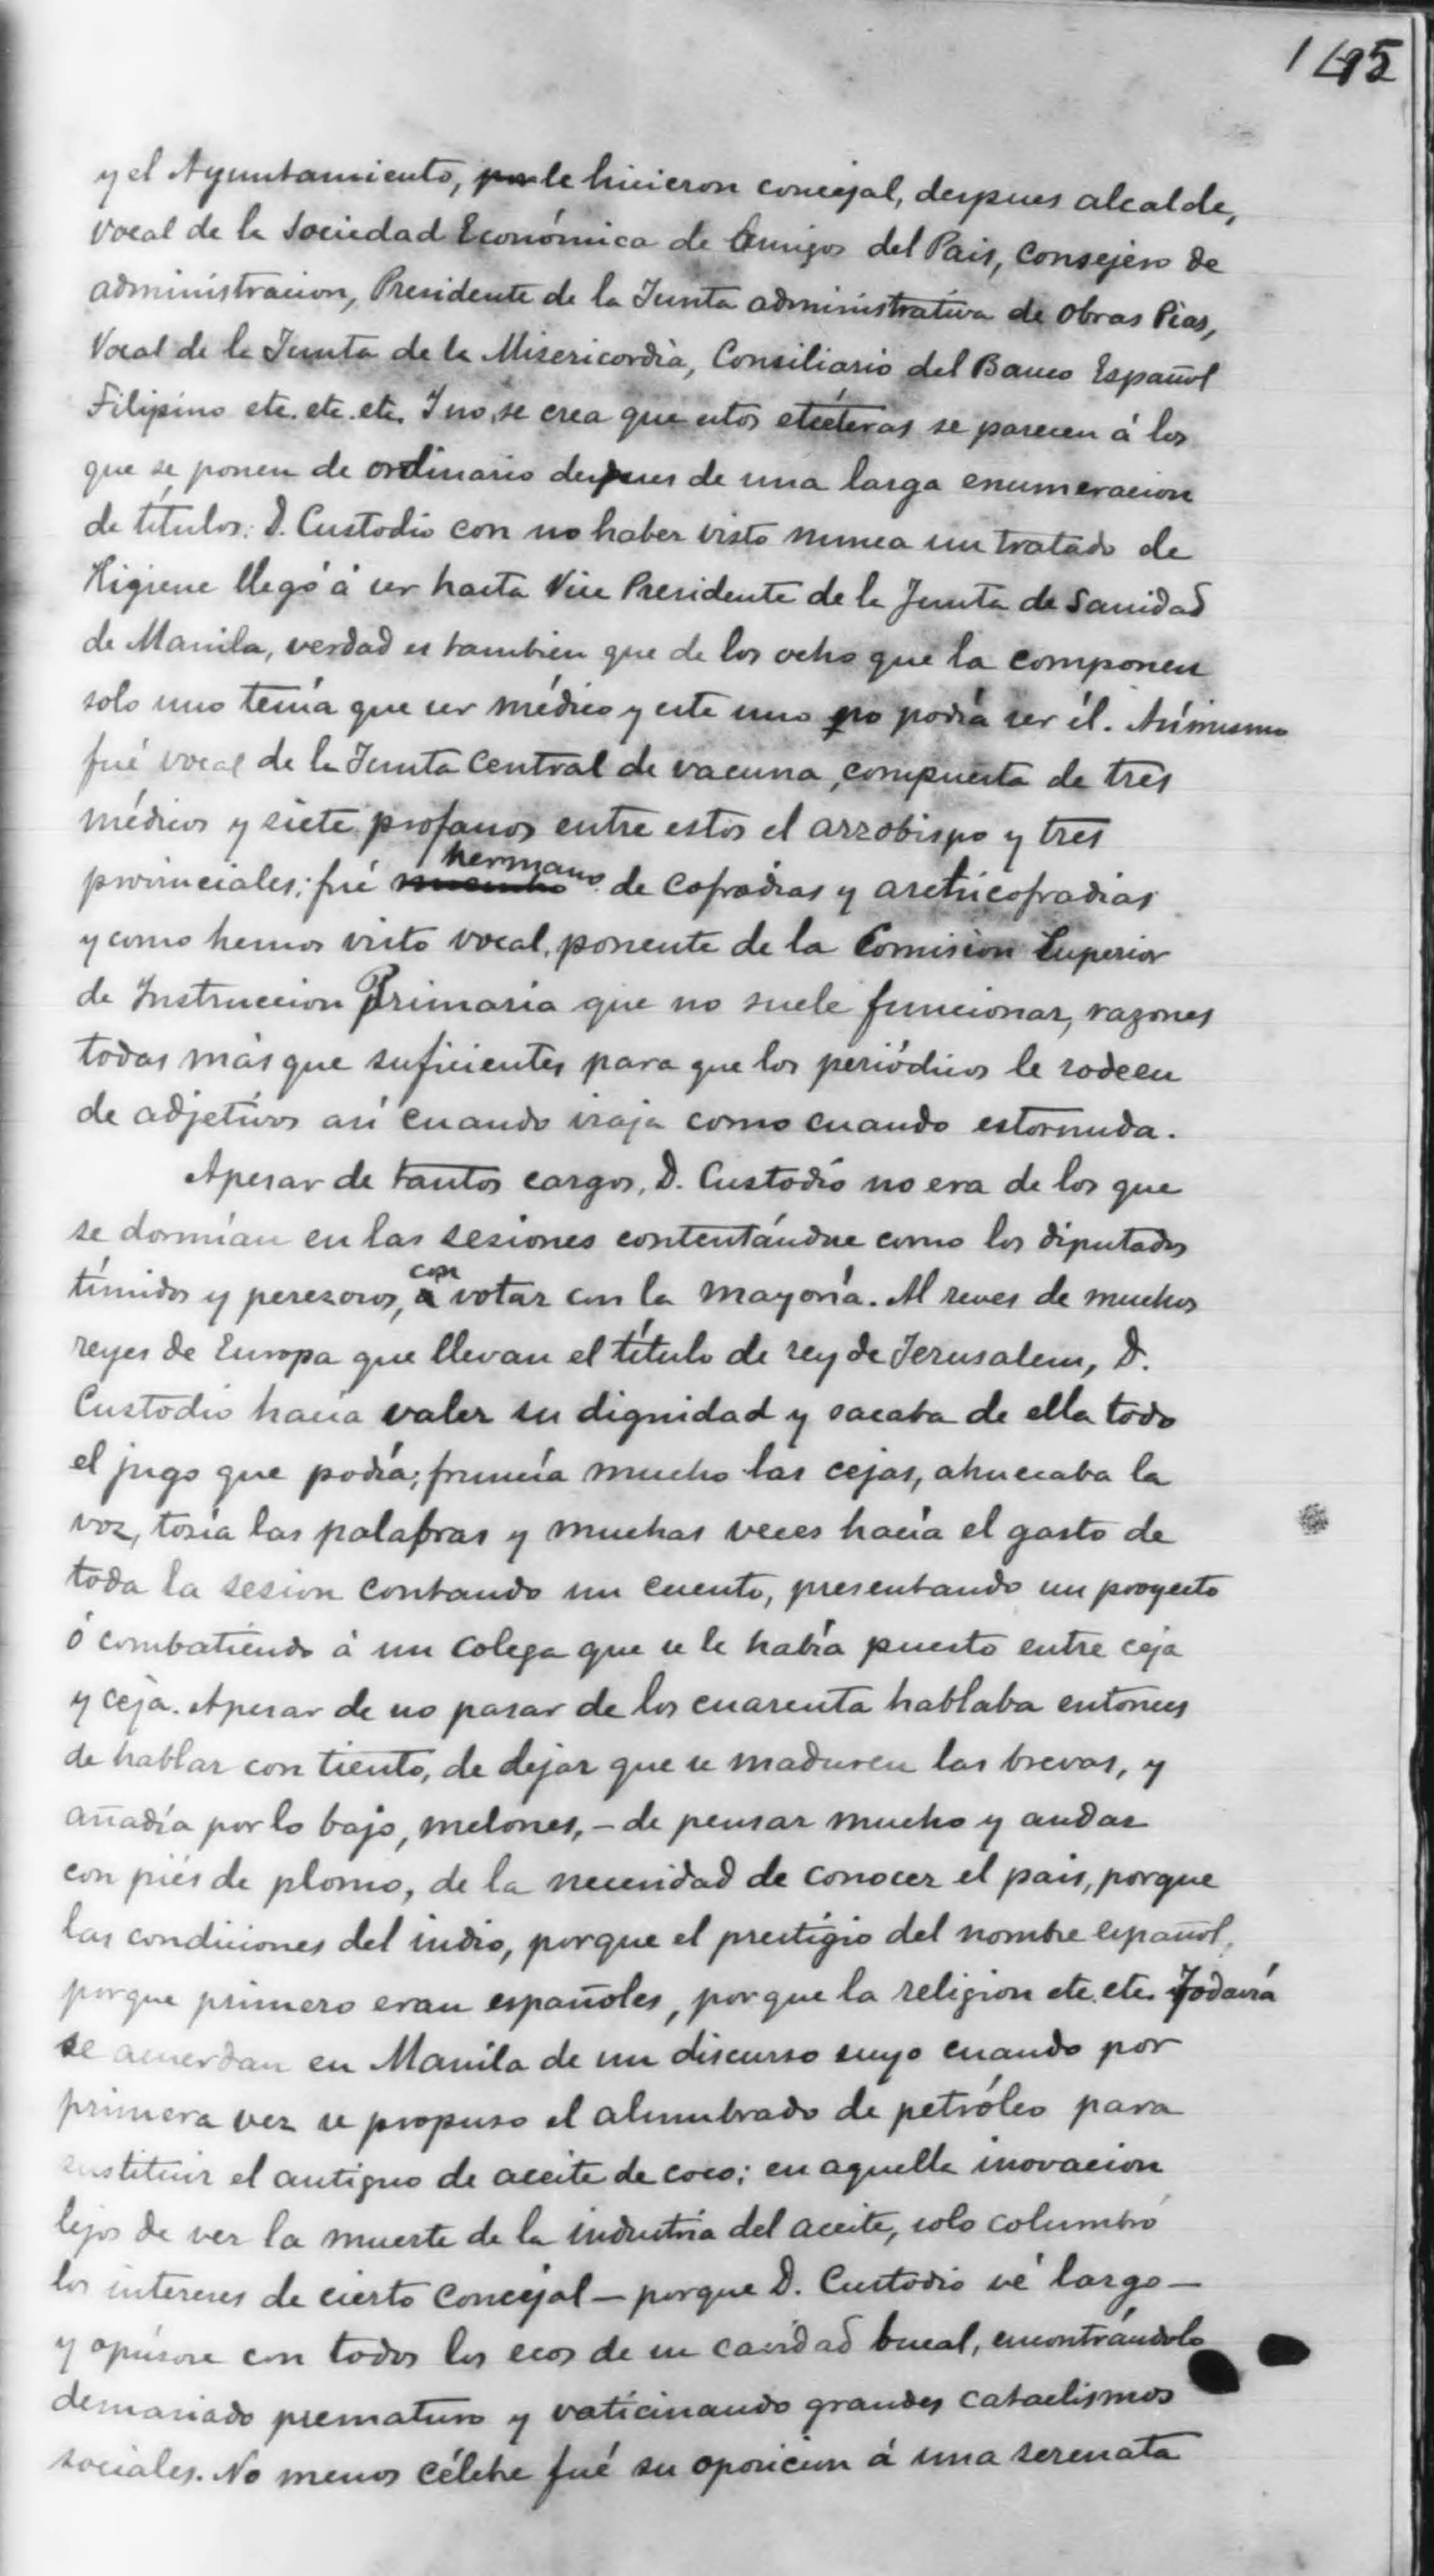 145
y el Ayuntamiento, le hicieron concejal, despues alcalde,
vocal de la Sociedad Económica de Amigos del Pais, Consejero de
administracion, Presidente de la Junta administrativa de Obras Pias,
Vocal de la Junta de la Misericordia, Consiliario del Banco Español
Filipino etc. etc. etc. Y no se crea que estos etcéteras se parecen á los
que se ponen de ordinario despues de una larga enumeracion
de títulos: D. Custodio con no haber visto nunca un tratado de
Higiene llegó á ser hasta Vice Presidente de la Junta de Sanidad
de Manila, verdad es tambien que de los ocho que la componen
solo uno tenía que ser médico y este uno no podía ser él. Asímismo
fué vocal de la Junta Central de vacuna, compuesta de tres
médicos y siete profanos entre estos el arzobispo y tres
provinciales; fué hermano de cofradías y archicofradías
y como hemos visto vocal, ponente de la Comision Superior
de Instruccion Primaria que no suele funcionar, razones
todas más que suficientes para que los periódicos le rodeen
de adjetivos así cuando viaja como cuando estornuda.
Apesar de tantos cargos, D. Custodio no era de los que
se dormían en las sesiones contentándose como los diputados
tímidos y perezosos, con votar con la mayoría. Al reves de muchos
reyes de Europa que llevan el título de rey de Jerusalem, D.
Custodio hacía valer su dignidad y sacaba de ella todo
el jugo que podía; fruncía mucho las cejas, ahuecaba la
voz, tosía las palabras y muchas veces hacía el gasto de
toda la sesion contando un cuento, presentando un proyecto
ó combatiendo á un colega que se le había puesto entre ceja
y ceja. Apesar de no pasar de los cuarenta hablaba entonces
de hablar con tiento, de dejar que se maduren las brevas, y
añadía por lo bajo, melones, - de pensar mucho y andar
con piés de plomo, de la necesidad de conocer el pais, porque
las condiciones del indio, porque el prestigio del nombre español,
porque primero eran españoles, porque la religion etc. etc. Todavía
se acuerdan en Manila de un discurso suyo cuando por
primera vez se propuso el alumbrado de petróleo para
sustituir el antiguo de aceite de coco; en aquella inovacion
lejos de ver la muerte de la industria del aceite, solo columbró
los intereses de cierto Concejal — porque D. Custodio vé largo —
y opúsose con todos los ecos de su cavidad bucal, encontrándolo
demasiado prematuro y vaticinando grandes cataclismos
sociales. No menos célebre fué su oposicion á una serenata